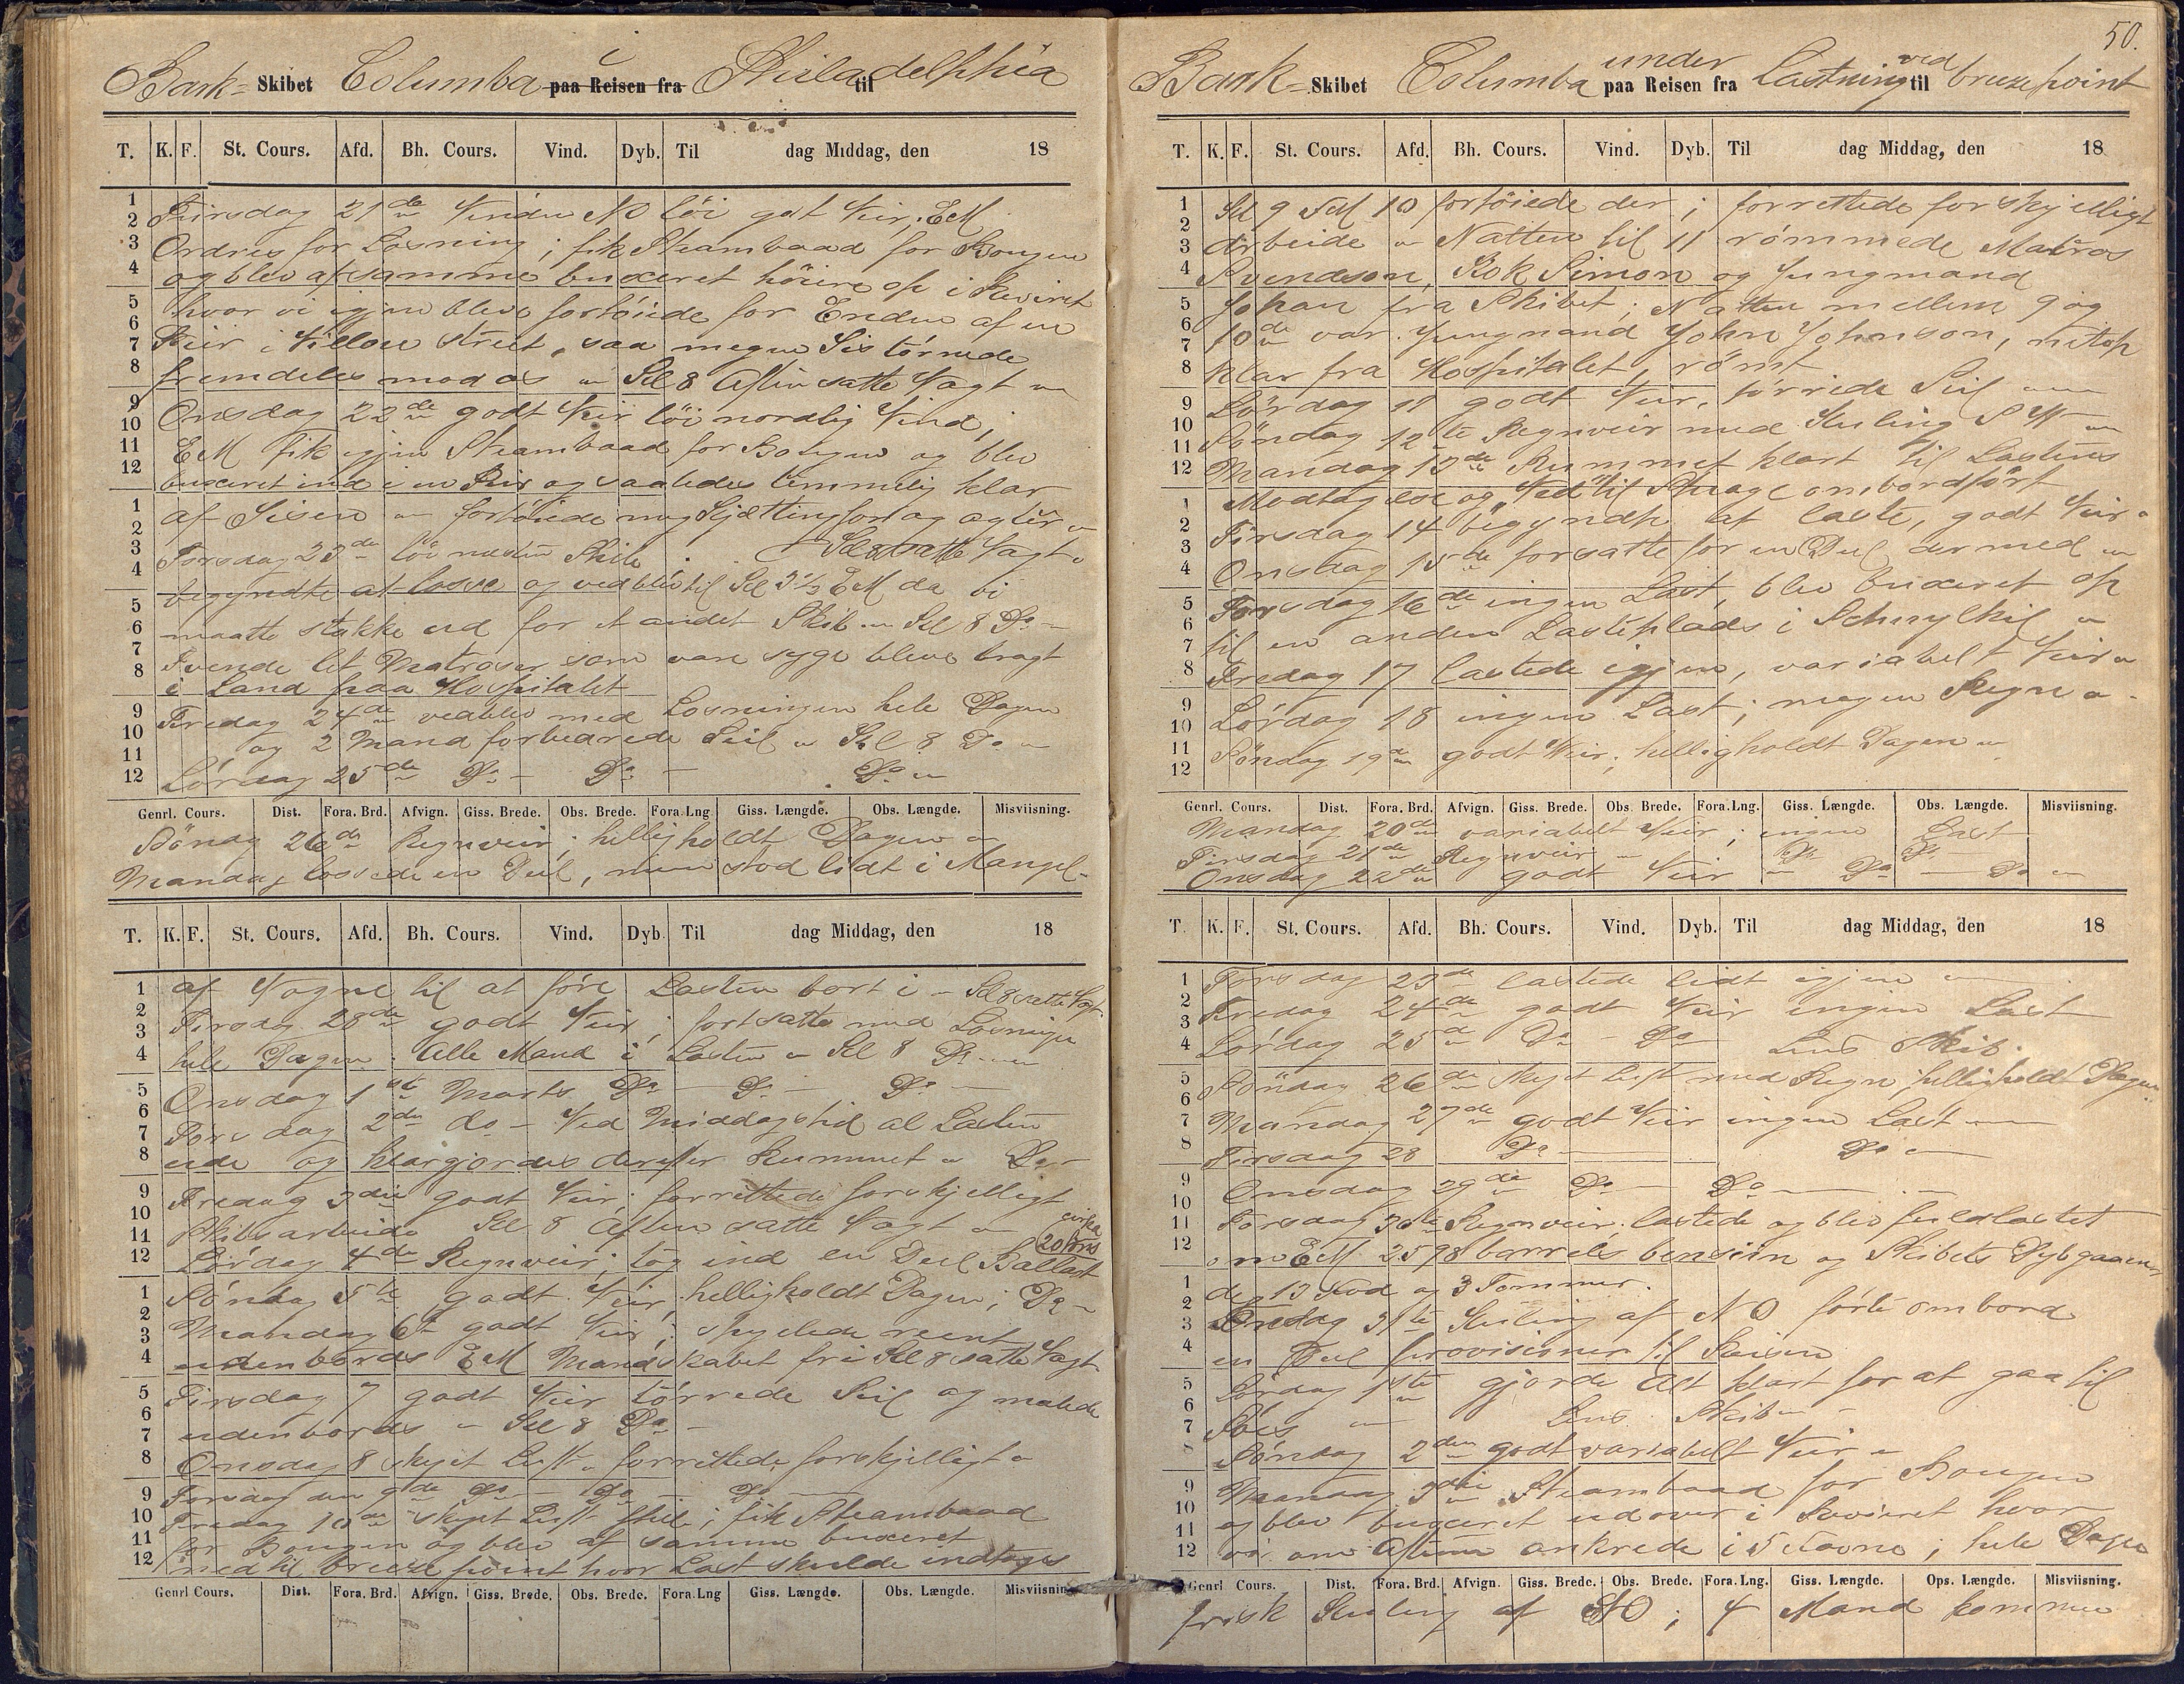 Bark- Skibet Columba i paa Reisen fra Philadelphia til
T. K. F. St. Cours. Afd. Bh. Cours. Vind. Dyb. Til dag Middag, den 18
Tirsdag 21de Vinden NO löi godt Veir, EM
Ordres for Losning; fik Steambaad for Bougen
og blev af samme buxeret höiere op i Reviret
hvor vi igjen bleve fortöiede for Enden af en
Peir i Willow Street, saa megen Iis törnede
fremdeles mod os - Kl 8 Aften satte Vagt -
Onsdag 22de godt Veir löi nordlig Vind,
EM Fik igjen Steambaad for Bougen og blev
buxeret ind i en Peir og saaledes temmelig klar
af Iisen - fortöiede meg Kjætting for og agter -
Kl 8 satte Vagt -
Torsdag 23de löi næsten Stile
begyndte at losse og vedblev til Kl 3 1/2 EM da vi
maatte stikke ud for et andet Skib - Kl 8 Do -
Tvende let Matroser som vare syge bleve bragt
i Land paa Hospitalet
Fredag 24de vedblev med Losningen hele Dagen
og 2 Mand forbedrede Seil - Kl 8 Do -
Lördag 25de Do - Do - Do -
Genrl. Cours. Dist. Fora. Brd. Afvign. Giss. Brede. Obs. Brede. Fora. Lng Giss. Længde. Obs. Længde. Misviisning.
Sönag 26de Regnveir; helligholdt Dagen -
Mandag lossede en Deel, men stod lidt i Mangel-
T. K. F. St. Cours. Afd. Bh. Cours. Vind. Dyb. Til dag Middag, den 18
af Vogne til at före Lasten bort i - Kl 8 satte Vagt
Tirsdag 28de godt Veir; fortsatte med Losningen
hele Dagen. Alle Mand i Lasten - Kl 8 Do -
Onsdag 1ste Marts Do - Do - Do -
Torsdag 2den do - Ved Middagstid al Lasten
ude og klargjordes derefter Rummet - Do -
Fredag 3die godt Veir; forrettede forskjelligt
Skibsarbeide Kl 8 Aften satte Vagt - cirka
Lördag 4de Regnveir; tog ind en Deel Ballast 20 tons
Söndag 5te godt Veir, helligholdt Dagen; Do -
Mandag 6te godt Veir; skyllede reent
udenbords EM Mandskabet fri Kl 8 satte Vagt
Tirsdag 7 godt Veir törrede Seil og malede
udenbords - Kl 8 Do -
Onsdag 8 skyet Luft - forrettede forskjelligt -
Torsdag den 9de do - do - do -
Fredag 10de skyet Luft Stile; fik Steambaad
for Bougen og blev af samme buxeret
ned til breeze point hvor Last skulde indtages
Genrl Cours. Dist. Fora. Brd. Afvign. Giss. Brede. Obs. Brede. Fora. Lng Giss. Længde. Obs. Længde. Misviisning
50.
Bark- Skibet Columba under paa Reisen fra Lastning ved til breeze point
T. K. F. St. Cours. Afd. Bh. Cours. Vind. Dyb. Til dag Middag, den 18
Kl 9 FM 10 fortöiede der; forrettede forskjelligt
Arbeide - Natten til 11 römmede Matros
Svendson, Kok Simon og Jungmand
Johan fra Skibet; Natten mellem 9 og
10de var Jungmand John Johnson, netop
klar fra Hospitalet, römt
Lördag 11 godt Veir, törrede Seil -
Söndag 12te Regnveir med Kuling SW -
Mandag 13de Rummet klart til Lastens
Modtagelse og Ved til Stuage ombordfört
Tirsdag 14 begyndte at laste, godt Veir -
Onsdag 15de forsatte for en Deel dermed -
Torsdag 16de ingen Last, blev buxeret op
til en anden Lasteplads i Schuylkil -
Fredag 17 lastede igjen, variabelt Veir -
Lördag 18 ingen Last; megen Regn -
Söndag 19de godt Veir; helligholdt Dagen -
Genrl. Cours. Dist. Fora. Brd. Afvign. Giss. Brede. Obs. Brede. Fora. Lng. Giss. Længde. Obs. Længde. Misviisning.
Mandag 20de variabelt Veir; ingen Last
Tirsdag 21de Regnveir - Do Do -
Onsdag 22de godt Veir - Do - Do -
T. K. F. St. Cours. Afd. Bh. Cours. Vind. Dyb. Til dag Middag, den 18
Torsdag 23de lastede lidt igjen -
Fredag 24de godt Veir ingen Last
Lördag 25de Do - Do - Lens Skib.
Söndag 26de skyet Luft med Regn, helligholdt Dagen
Mandag 27de godt Veir ingen Last -
Tirsdag 28 Do - Do -
Onsdag 29de Do - Do -
Torsdag 30te Regnveir; lastede og blev fuldlastet
om EM 2598 barrels bensiin og Skibets Dybgaaen
de 13 Fod og 3 Tommer.
31te Kuling af NO förte ombord
en Deel provisioner til Reisen
Lördag 1ste gjorde Alt klart for at gaa til
Söes - Lens Skib -
Söndag 2den godt variabelt Veir -
Mandag 3die Steambaad for Bougen
og blev buxeret udover i Reviret hvor
vi om Aftenen ankrede i 5 Favne; hele Dagen
Genrl Cours. Dist. Fora. Brd. Afvign. Giss. Brede. Obs. Brede. Fora. Lng. Giss. Længde. Ops. Længde. Misviisning.
frisk Kuling af NO; 4 Mand kommen